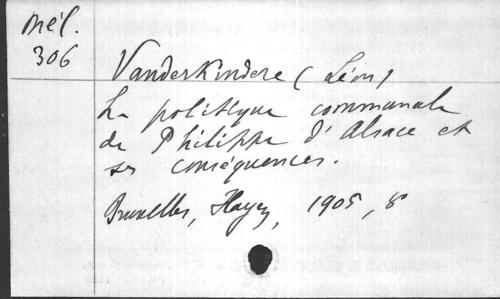 Mél.
306
VanderKindere (Léon)
La politique communale
de Philippe d'Alsace et
ses conséquences.
Bruxelles, Hayez, 1905, 8°